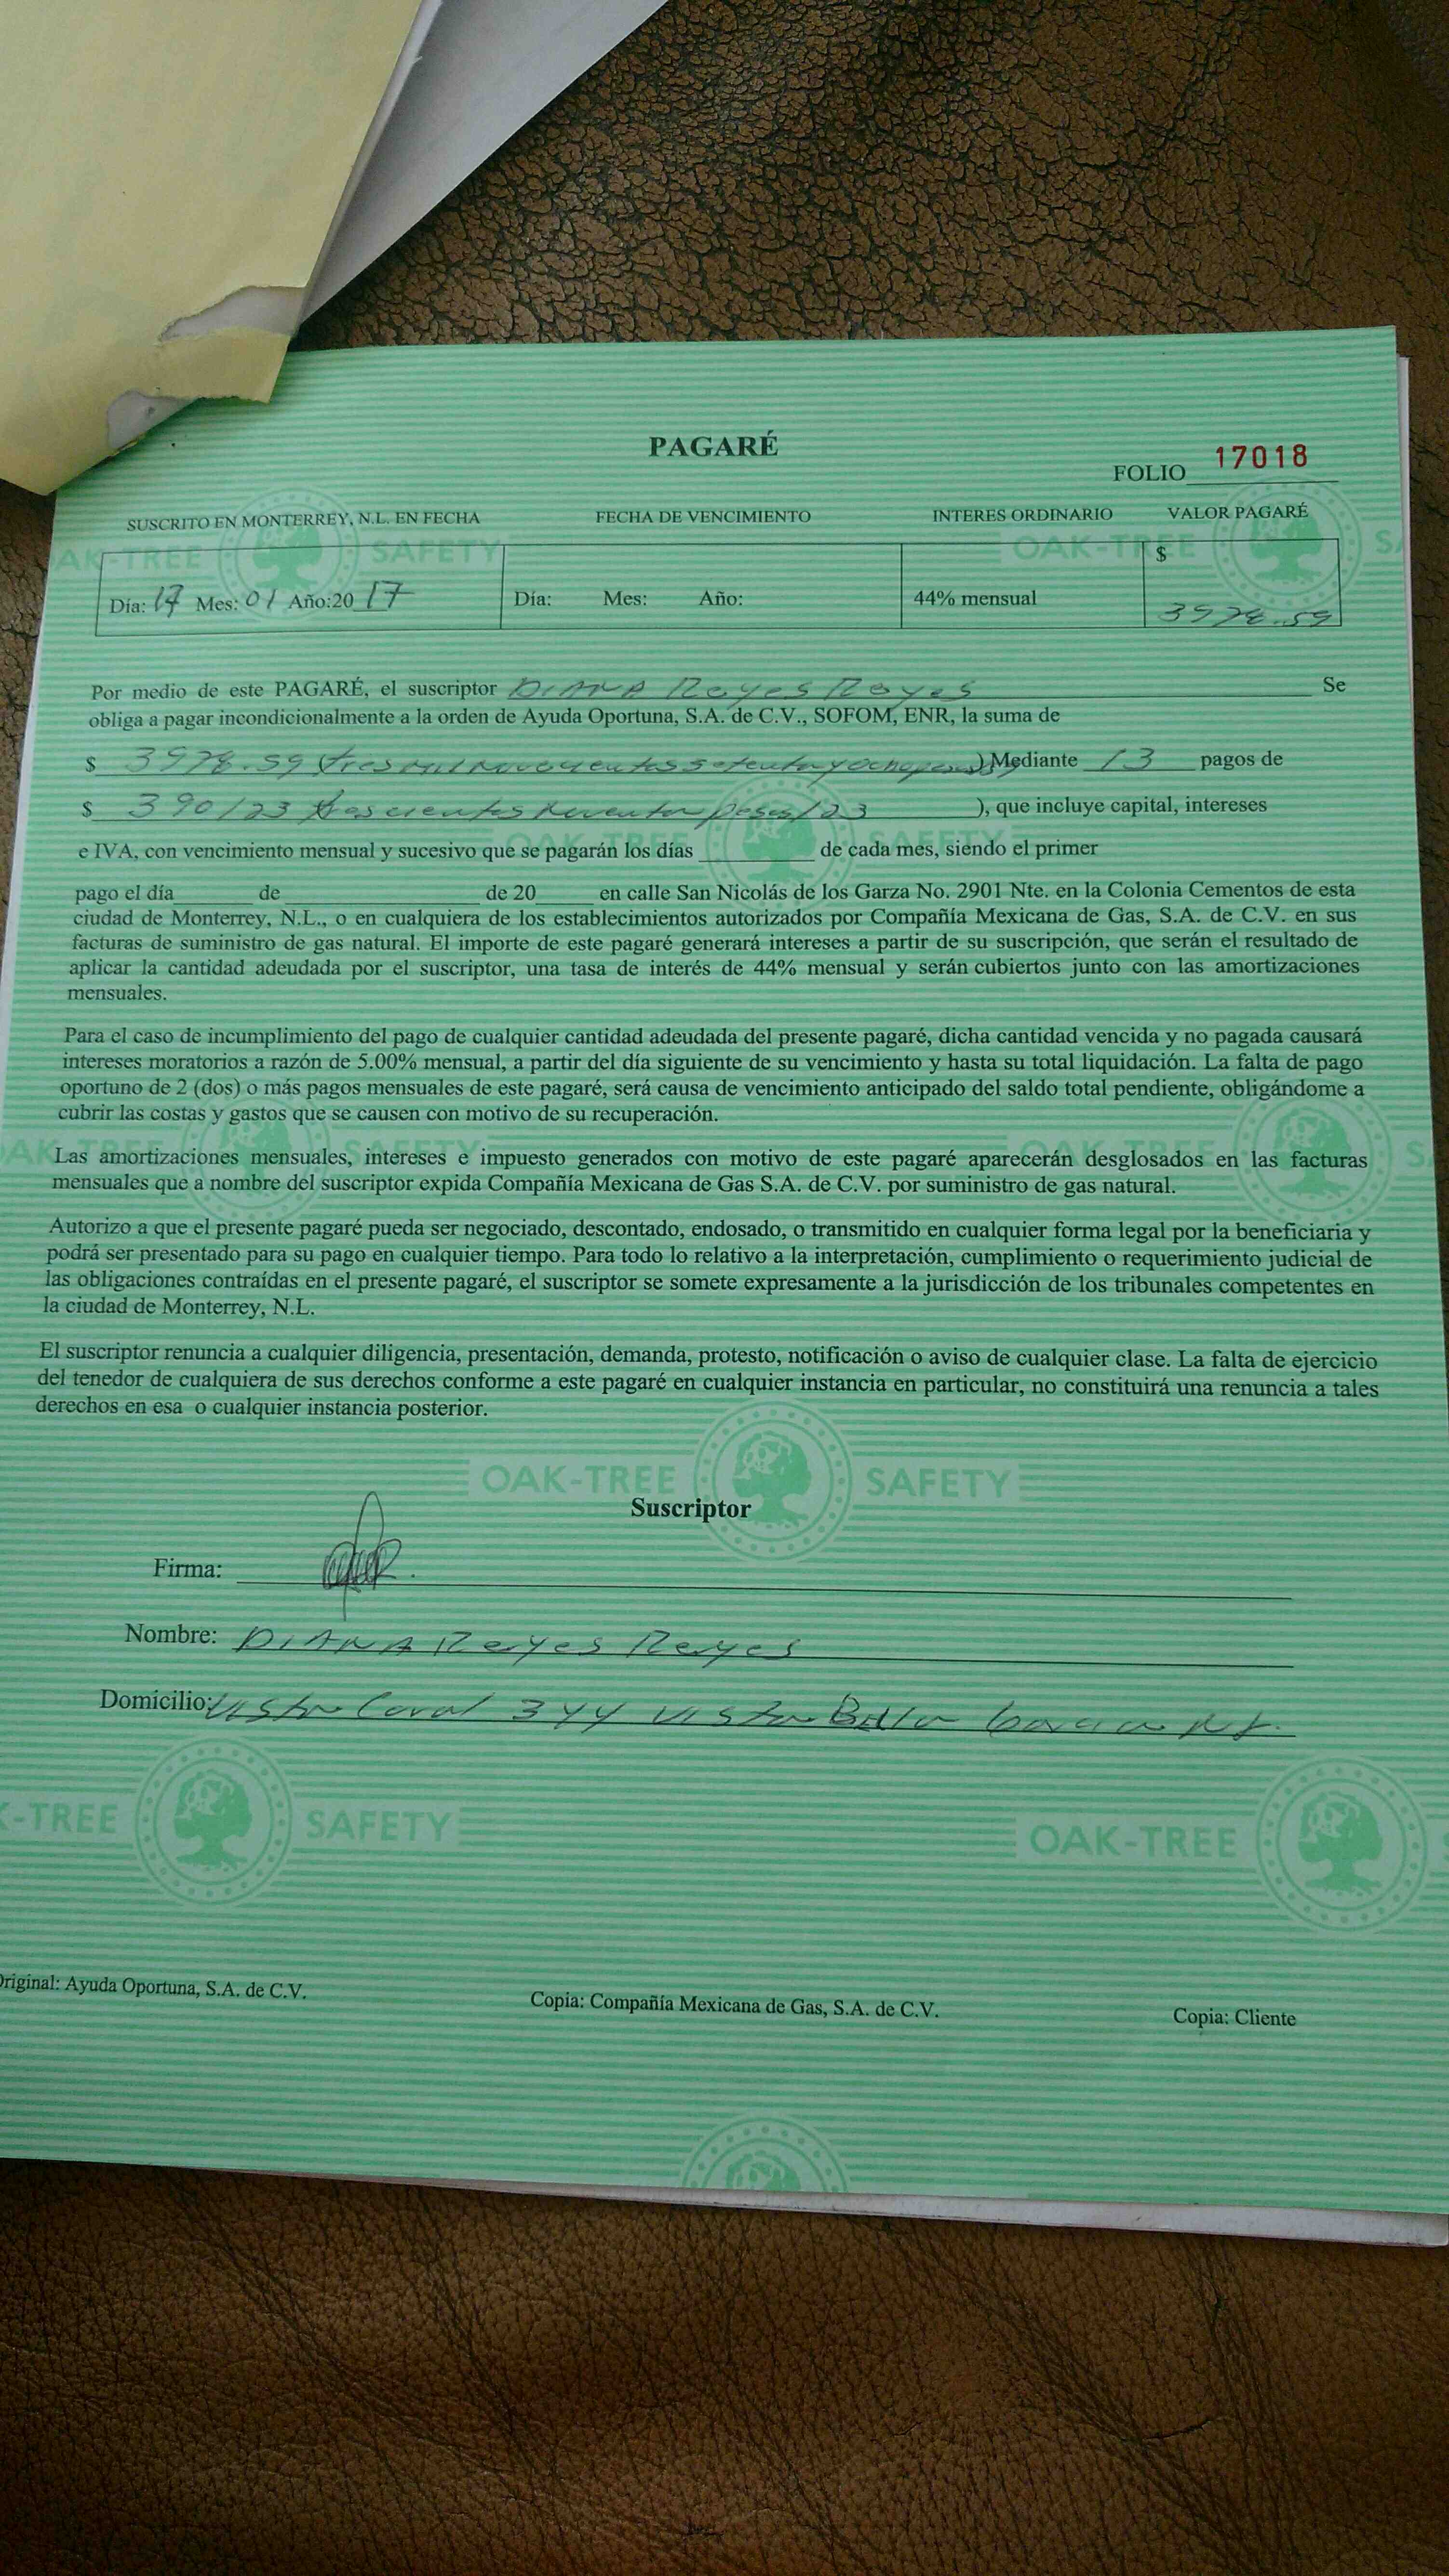 PAGARÉ
FOLIO 17018
SUSCRITO EN MONTERREY, N.L. EN FECHA FECHA DE VENCIMIENTO INTERES ORDINARIO VALOR PAGARÉ
$
Día: 17 Mes: 01 Año:20 17 Día: Mes: Año: 44% mensual 3978.59
Por medio de este PAGARÉ, el suscriptor DIANA Reyes Reyes Se
obliga a pagar incondicionalmente a la orden de Ayuda Oportuna, S.A. de C.V., SOFOM, ENR, la suma de
$ 3978.59 (tres mil novecientos setenta y ocho pesos) Mediante 13 pagos de
$ 390/23 trescientos noventa pesos/23 ), que incluye capital, intereses
e IVA, con vencimiento mensual y sucesivo que se pagarán los días de cada mes, siendo el primer
pago el día de de 20 en calle San Nicolás de los Garza No. 2901 Nte. en la Colonia Cementos de esta
ciudad de Monterrey, N.L., o en cualquiera de los establecimientos autorizados por Compañía Mexicana de Gas, S.A. de C.V. en sus
facturas de suministro de gas natural. El importe de este pagaré generará intereses a partir de su suscripción, que serán el resultado de
aplicar la cantidad adeudada por el suscriptor, una tasa de interés de 44% mensual y serán cubiertos junto con las amortizaciones
mensuales.
Para el caso de incumplimiento del pago de cualquier cantidad adeudada del presente pagaré, dicha cantidad vencida y no pagada causará
intereses moratorios a razón de 5.00% mensual, a partir del día siguiente de su vencimiento y hasta su total liquidación. La falta de pago
oportuno de 2 (dos) o más pagos mensuales de este pagaré, será causa de vencimiento anticipado del saldo total pendiente, obligándome a
cubrir las costas y gastos que se causen con motivo de su recuperación.
Las amortizaciones mensuales, intereses e impuesto generados con motivo de este pagaré aparecerán desglosados en las facturas
mensuales que a nombre del suscriptor expida Compañía Mexicana de Gas S.A. de C.V. por suministro de gas natural.
Autorizo a que el presente pagaré pueda ser negociado, descontado, endosado, o transmitido en cualquier forma legal por la beneficiaria y
podrá ser presentado para su pago en cualquier tiempo. Para todo lo relativo a la interpretación, cumplimiento o requerimiento judicial de
las obligaciones contraídas en el presente pagaré, el suscriptor se somete expresamente a la jurisdicción de los tribunales competentes en
la ciudad de Monterrey, N.L.
El suscriptor renuncia a cualquier diligencia, presentación, demanda, protesto, notificación o aviso de cualquier clase. La falta de ejercicio
del tenedor de cualquiera de sus derechos conforme a este pagaré en cualquier instancia en particular, no constituirá una renuncia a tales
derechos en esa o cualquier instancia posterior.
OAK-TREE SAFETY
Suscriptor
Firma:
Nombre: DIANA Reyes Reyes
Domicilio: Vista 344 Vista Bella
OAK-TREE SAFETY OAK-TREE
Original: Ayuda Oportuna, S.A. de C.V. Copia: Compañía Mexicana de Gas, S.A. de C.V. Copia: Cliente